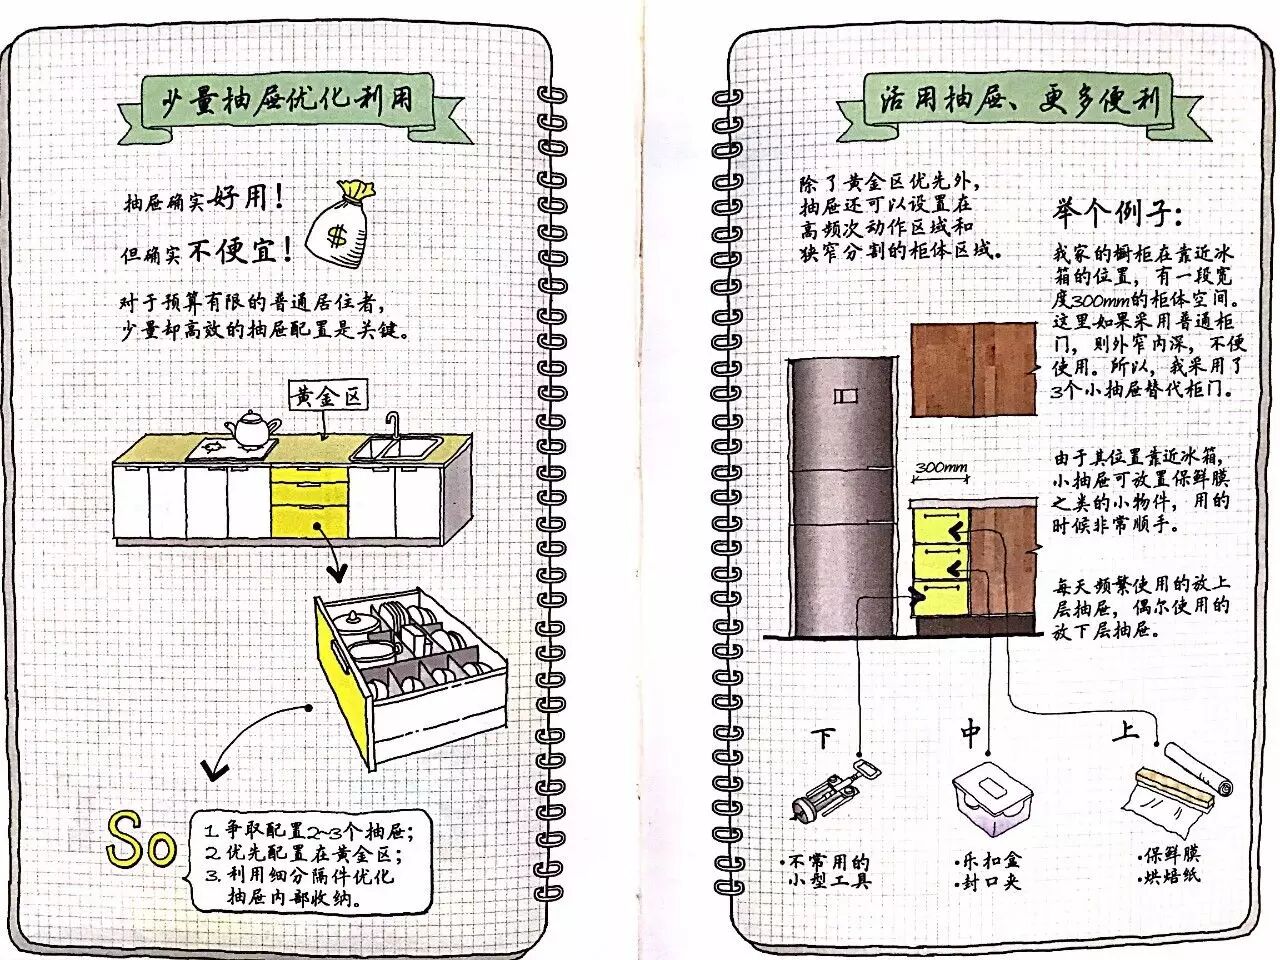 少量抽屉优化利用
抽屉确实好用!
$
但确实不便宜!
对于预算有限的普通居住者，
少量却高效的抽屉配置是关键。
黄金区
So
1. 争取配置2~3个抽屉;
2. 优先配置在黄金区;
3. 利用细分隔件优化
抽屉内部收纳。
活用抽屉、更多便利
除了黄金区优先外，
抽屉还可以设置在
高频次动作区域和
狭窄分割的柜体区域。
举个例子:
我家的橱柜在靠近冰
箱的位置，有一段宽
度300mm的柜体空间。
这里如果采用普通柜
门，则外窄内深，不便
使用。所以，我采用了
3个小抽屉替代柜门。
300mm
由于其位置靠近冰箱，
小抽屉可放置保鲜膜
之类的小物件，用的
时候非常顺手。
每天频繁使用的放上
层抽屉，偶尔使用的
放下层抽屉。
下
中
上
·不常用的
小型工具
·乐扣盒
·封口夹
·保鲜膜
·烘焙纸